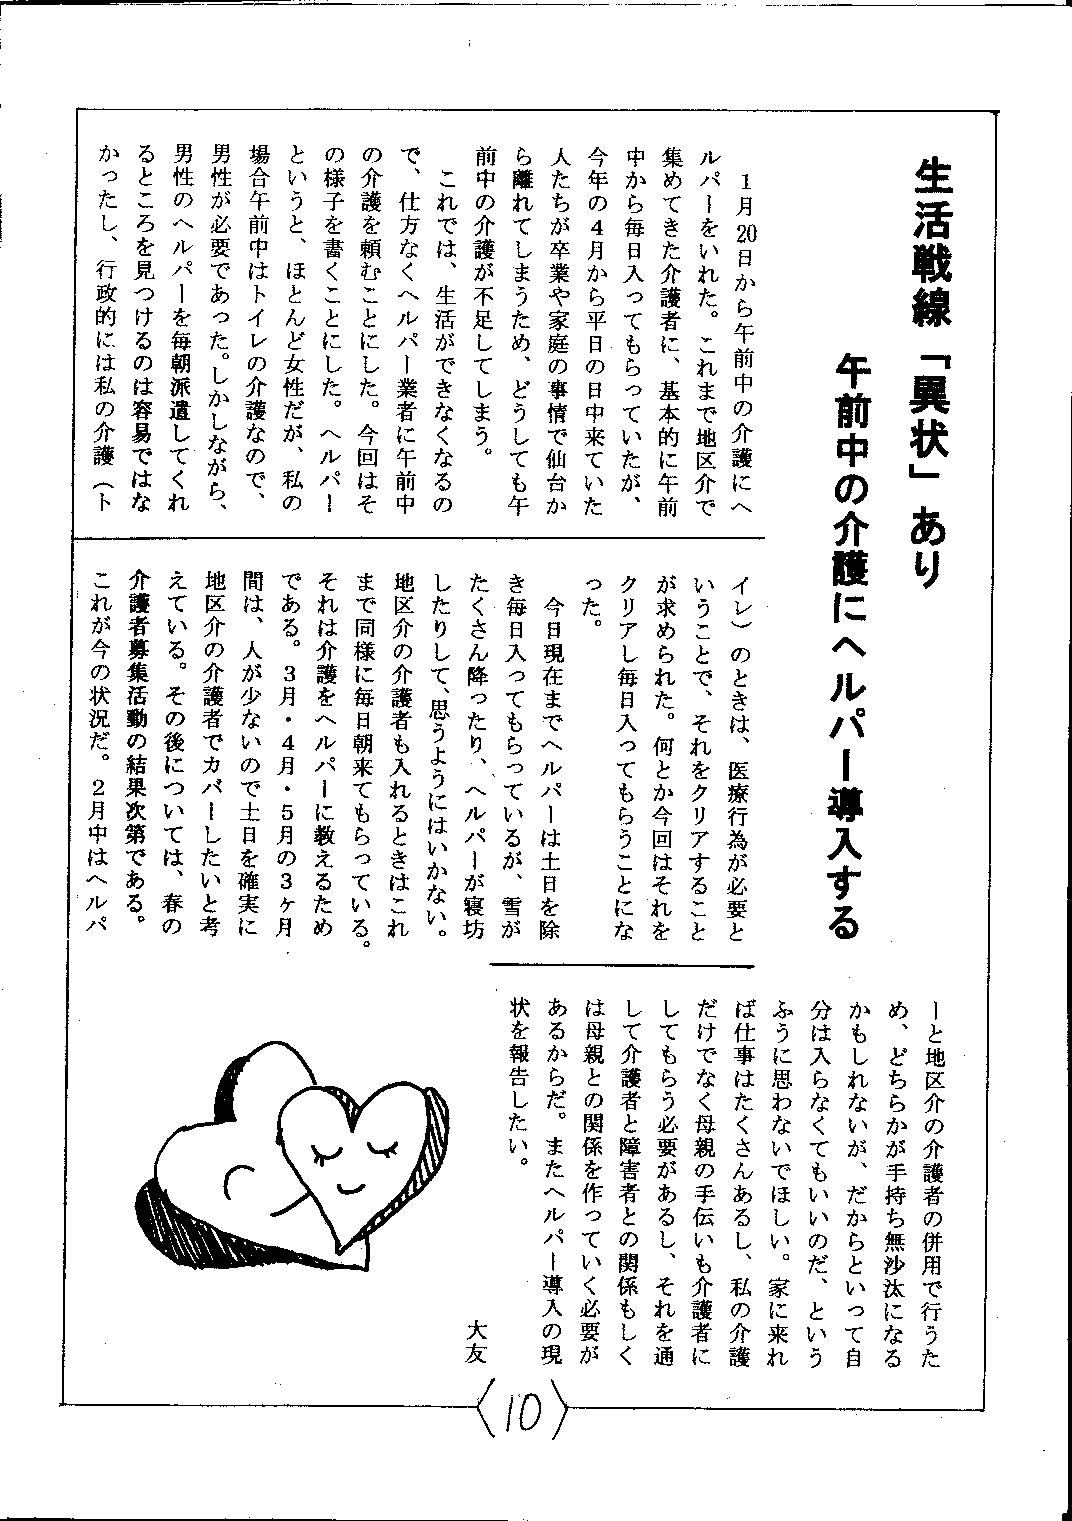 生活戦線「異状」あり
午前中の介護にヘルパー導入する
1月20日から午前中の介護にヘ
ルパーをいれた。これまで地区介で
集めてきた介護者に、基本的に午前
中から毎日入ってもらっていたが、
今年の4月から平日の日中来ていた
人たちが卒業や家庭の事情で仙台か
ら離れてしまうため、どうしても午
前中の介護が不足してしまう。
これでは、生活ができなくなるの
で、仕方なくヘルパー業者に午前中
の介護を頼むことにした。今回はそ
の様子を書くことにした。ヘルパー
というと、ほとんど女性だが、私の
場合午前中はトイレの介護なので、
男性が必要であった。しかしながら、
男性のヘルパーを毎朝派遣してくれ
るところを見つけるのは容易ではな
かったし、行政的には私の介護（ト
イレ）のときは、医療行為が必要と
いうことで、それをクリアすること
が求められた。何とか今回はそれを
クリアし毎日入ってもらうことにな
った。
今日現在までヘルパーは土日を除
き毎日入ってもらっているが、雪が
たくさん降ったり、ヘルパーが寝坊
したりして、思うようにはいかない。
地区介の介護者も入れるときはこれ
まで同様に毎日朝来てもらっている。
それは介護をヘルパーに教えるため
である。3月・4月・5月の3ヶ月
間は、人が少ないので土日を確実に
地区介の介護者でカバーしたいと考
えている。その後については、春の
介護者募集活動の結果次第である。
これが今の状況だ。2月中はヘルパ
ーと地区介の介護者の併用で行うた
め、どちらかが手持ち無沙汰になる
かもしれないが、だからといって自
分は入らなくてもいいのだ、という
ふうに思わないでほしい。家に来れ
ば仕事はたくさんあるし、私の介護
だけでなく母親の手伝いも介護者に
してもらう必要があるし、それを通
して介護者と障害者との関係もしく
は母親との関係を作っていく必要が
あるからだ。またヘルパー導入の現
状を報告したい。
大友
〈10〉